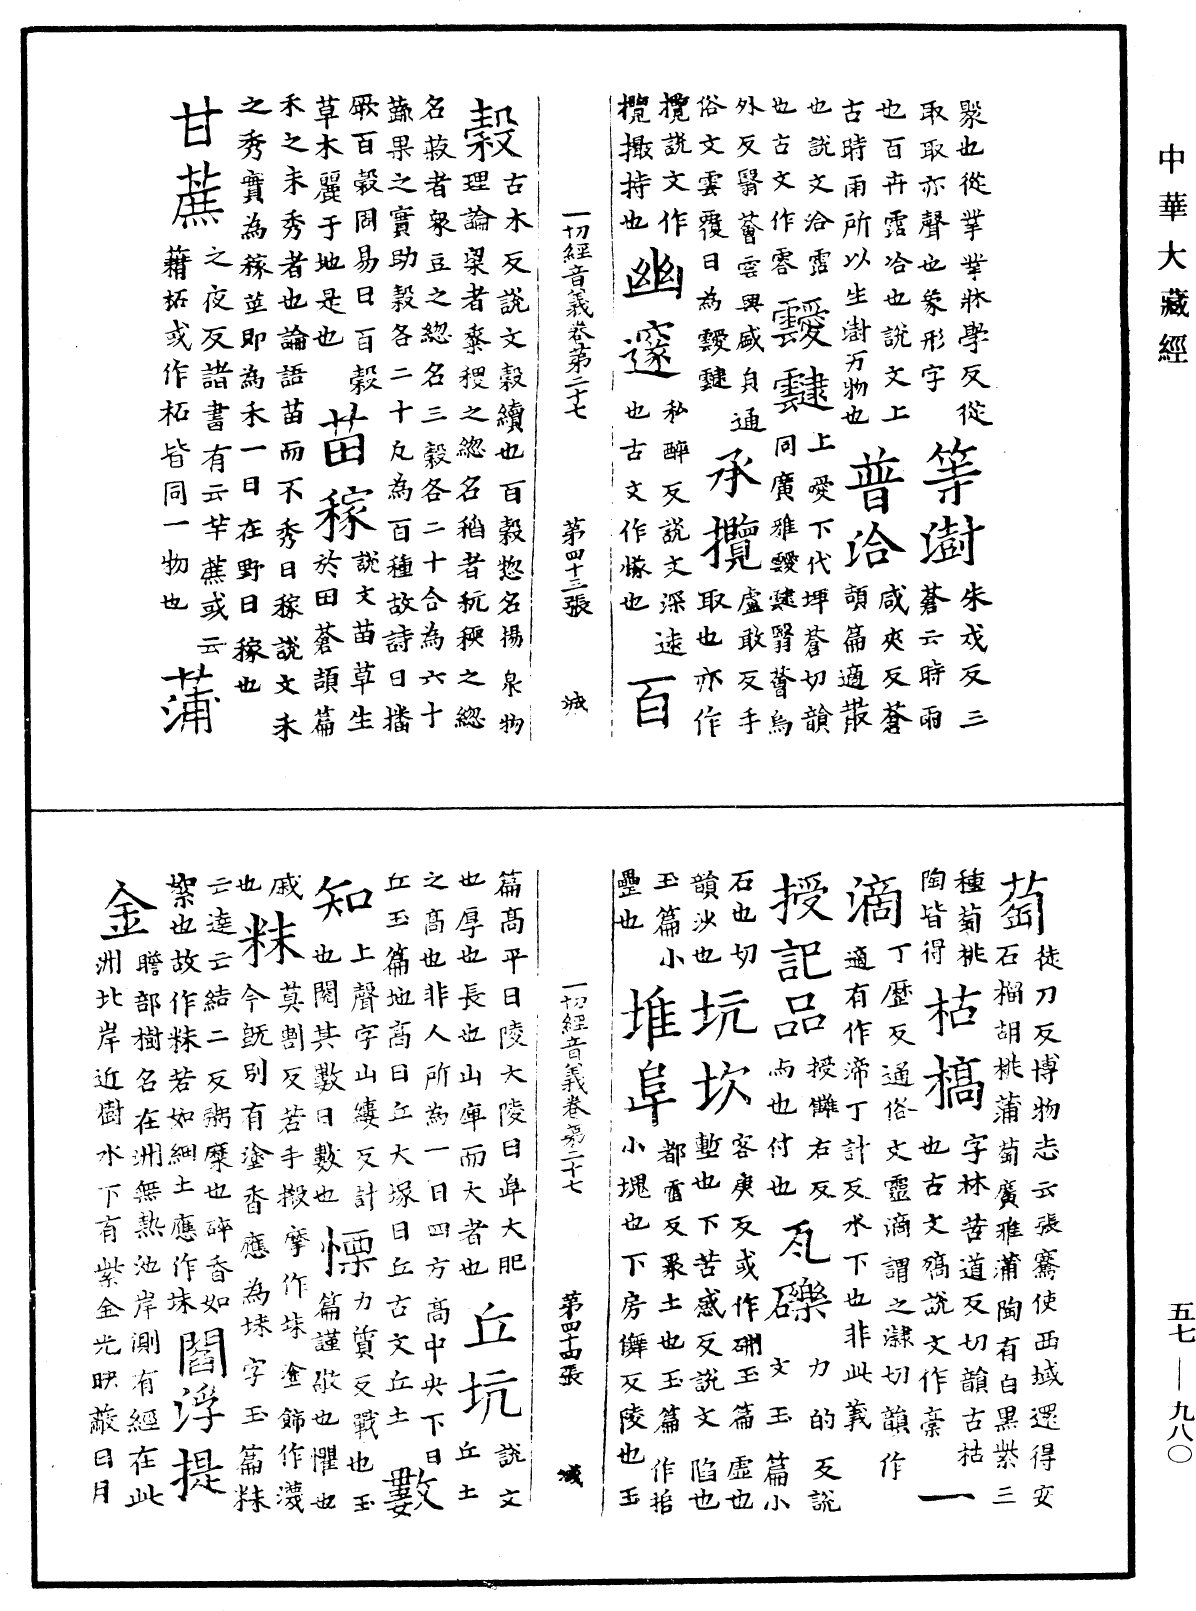 中華大藏經
聚也從丵丵牀學反從
取取亦聲也象形字 等澍 朱戍反三蒼云時雨
也百卉霑洽也說文上
古時雨所以生澍万物也 普洽 咸夾反蒼頡篇適散
也說文洽霑
也古文作零 靉靆 上愛下代埤蒼切韻同廣雅靉靆翳薈烏
外反翳薈雲興盛皃通
俗文雲覆日為靉靆 承攬 盧敢反手取也亦作
㩜說文作
㩜撮持也 幽邃 私醉反說文深遠也古文作㒸也 百
一切經音義卷第二十七 第四十三張 城
穀 古木反說文穀續也百穀惣名楊泉物
理論梁者黍稷之惣名稻者秔稉之惣
名菽者衆豆之惣名三穀各二十合為六十
蔬果之實助穀各二十凡為百種故詩曰播
厥百穀周易曰百穀
草木麗于地是也 苗稼 說文苗草生於田蒼頡篇
禾之未秀者也論語苗而不秀曰稼說文禾
之秀實為稼莖即為禾一曰在野曰稼也
甘蔗 之夜反諸書有云竿蔗或云
藉柘或作柘皆同一物也 蒲
萄 徒刀反博物志云張騫使西域還得安
石榴胡桃蒲萄廣雅蒲陶有白黑紫三
種萄桃
陶皆得 枯槁 字林苦道反切韻古枯也古文㰏說文作槀 一
滴 丁歷反通俗文靈滴謂之㵣切韻作
適有作渧丁計反水下也非此義
授記品 授讎右反与也付也 瓦礫 力的反說文玉篇小
石也切
韻沙也 坑坎 客庚反或作硎玉篇虛也塹也下苦感反說文陷也
玉篇小
壘也 堆阜 都迴反聚土也玉篇作㠯小塊也下房儛反陵也玉
一切經音義卷第二十七 第四十四張 城
篇高平曰陵大陵曰阜大肥
也厚也長也山庳而大者也 丘坑 說文丘土
之高也非人所為一曰四方高中央下曰
丘玉篇地高曰丘大塚曰丘古文丘土 數
知 上聲字山縷反計也閱其數曰數也 慄 力質反戰也玉篇謹敬也懼也
慼
也 粖 莫割反若手摋摩作抹塗飾作𥻦今既別有塗香應為㸿字玉篇粖
云䆲云結二反粥糜也碎香如
絮也故作粖若如細土應作㘸 閻浮提
贍部樹名在洲無熱池岸測有經在此
金 洲北岸近樹水下有紫金光映蔽日月
五七—九八〇